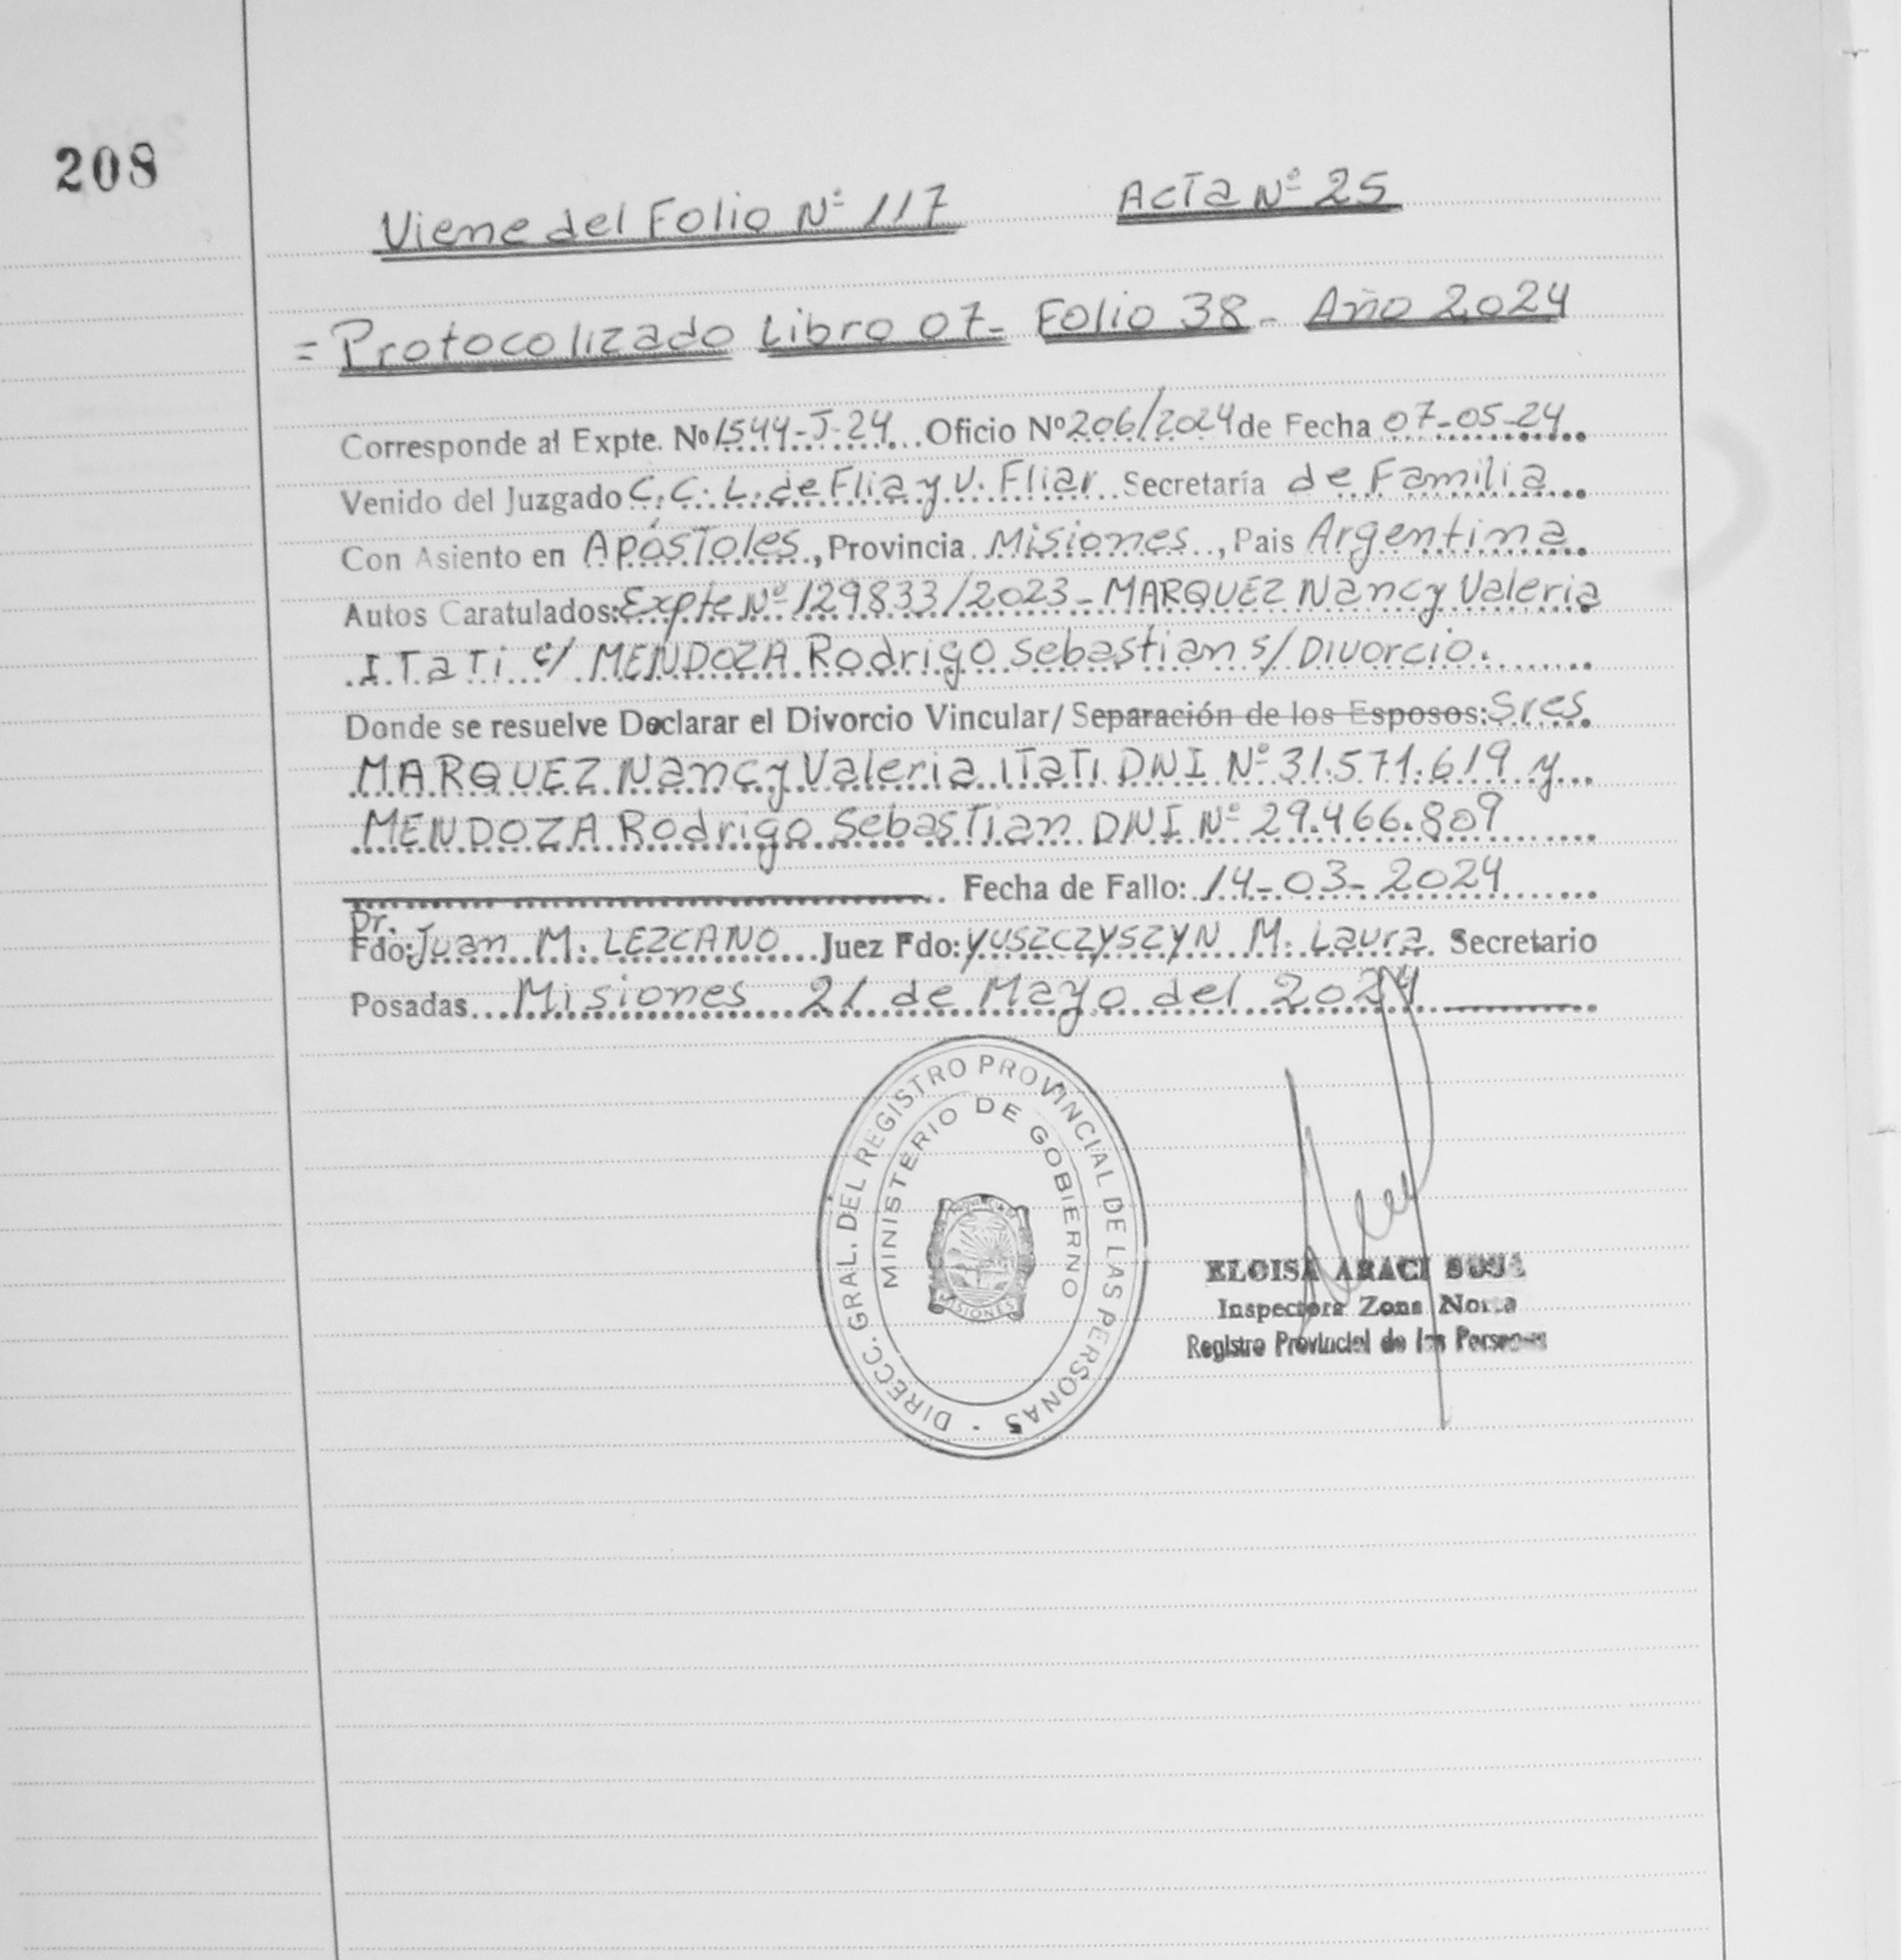 208
Viene del Folio Nº 117 Acta Nº 25
= Protocolizado Libro 07- Folio 38- Año 2024
Corresponde al Expte. Nº 1544-J-24... Oficio Nº 206/2024 de Fecha 07-05-24
Venido del Juzgado C.C.L. de Flia y V. Fliar. Secretaría de Familia
Con Asiento en Apóstoles, Provincia Misiones, Pais Argentina
Autos Caratulados: Expte Nº 129833/2023- MARQUEZ Nancy Valeria
ITaTi c/ MENDOZA Rodrigo Sebastian s/ Divorcio.
Donde se resuelve Declarar el Divorcio Vincular/ Separación de los Esposos: Sres
MARQUEZ Nancy Valeria ITaTI DNI Nº 31.571.619 y
MENDOZA Rodrigo Sebastian DNI Nº 29.466.809
Fecha de Fallo: 14-03-2024
Dr.
Fdo: Juan M. LEZCANO Juez Fdo: YUSZCZYSZYN M. Laura Secretario
Posadas Misiones 21 de Mayo del 2024
DIRECC. GRAL. DEL REGISTRO PROVINCIAL DE LAS PERSONAS -
MINISTERIO DE GOBIERNO
MISIONES
ELOISA ARACI
Inspectora Zona Norte
Registro Provincial de las Personas